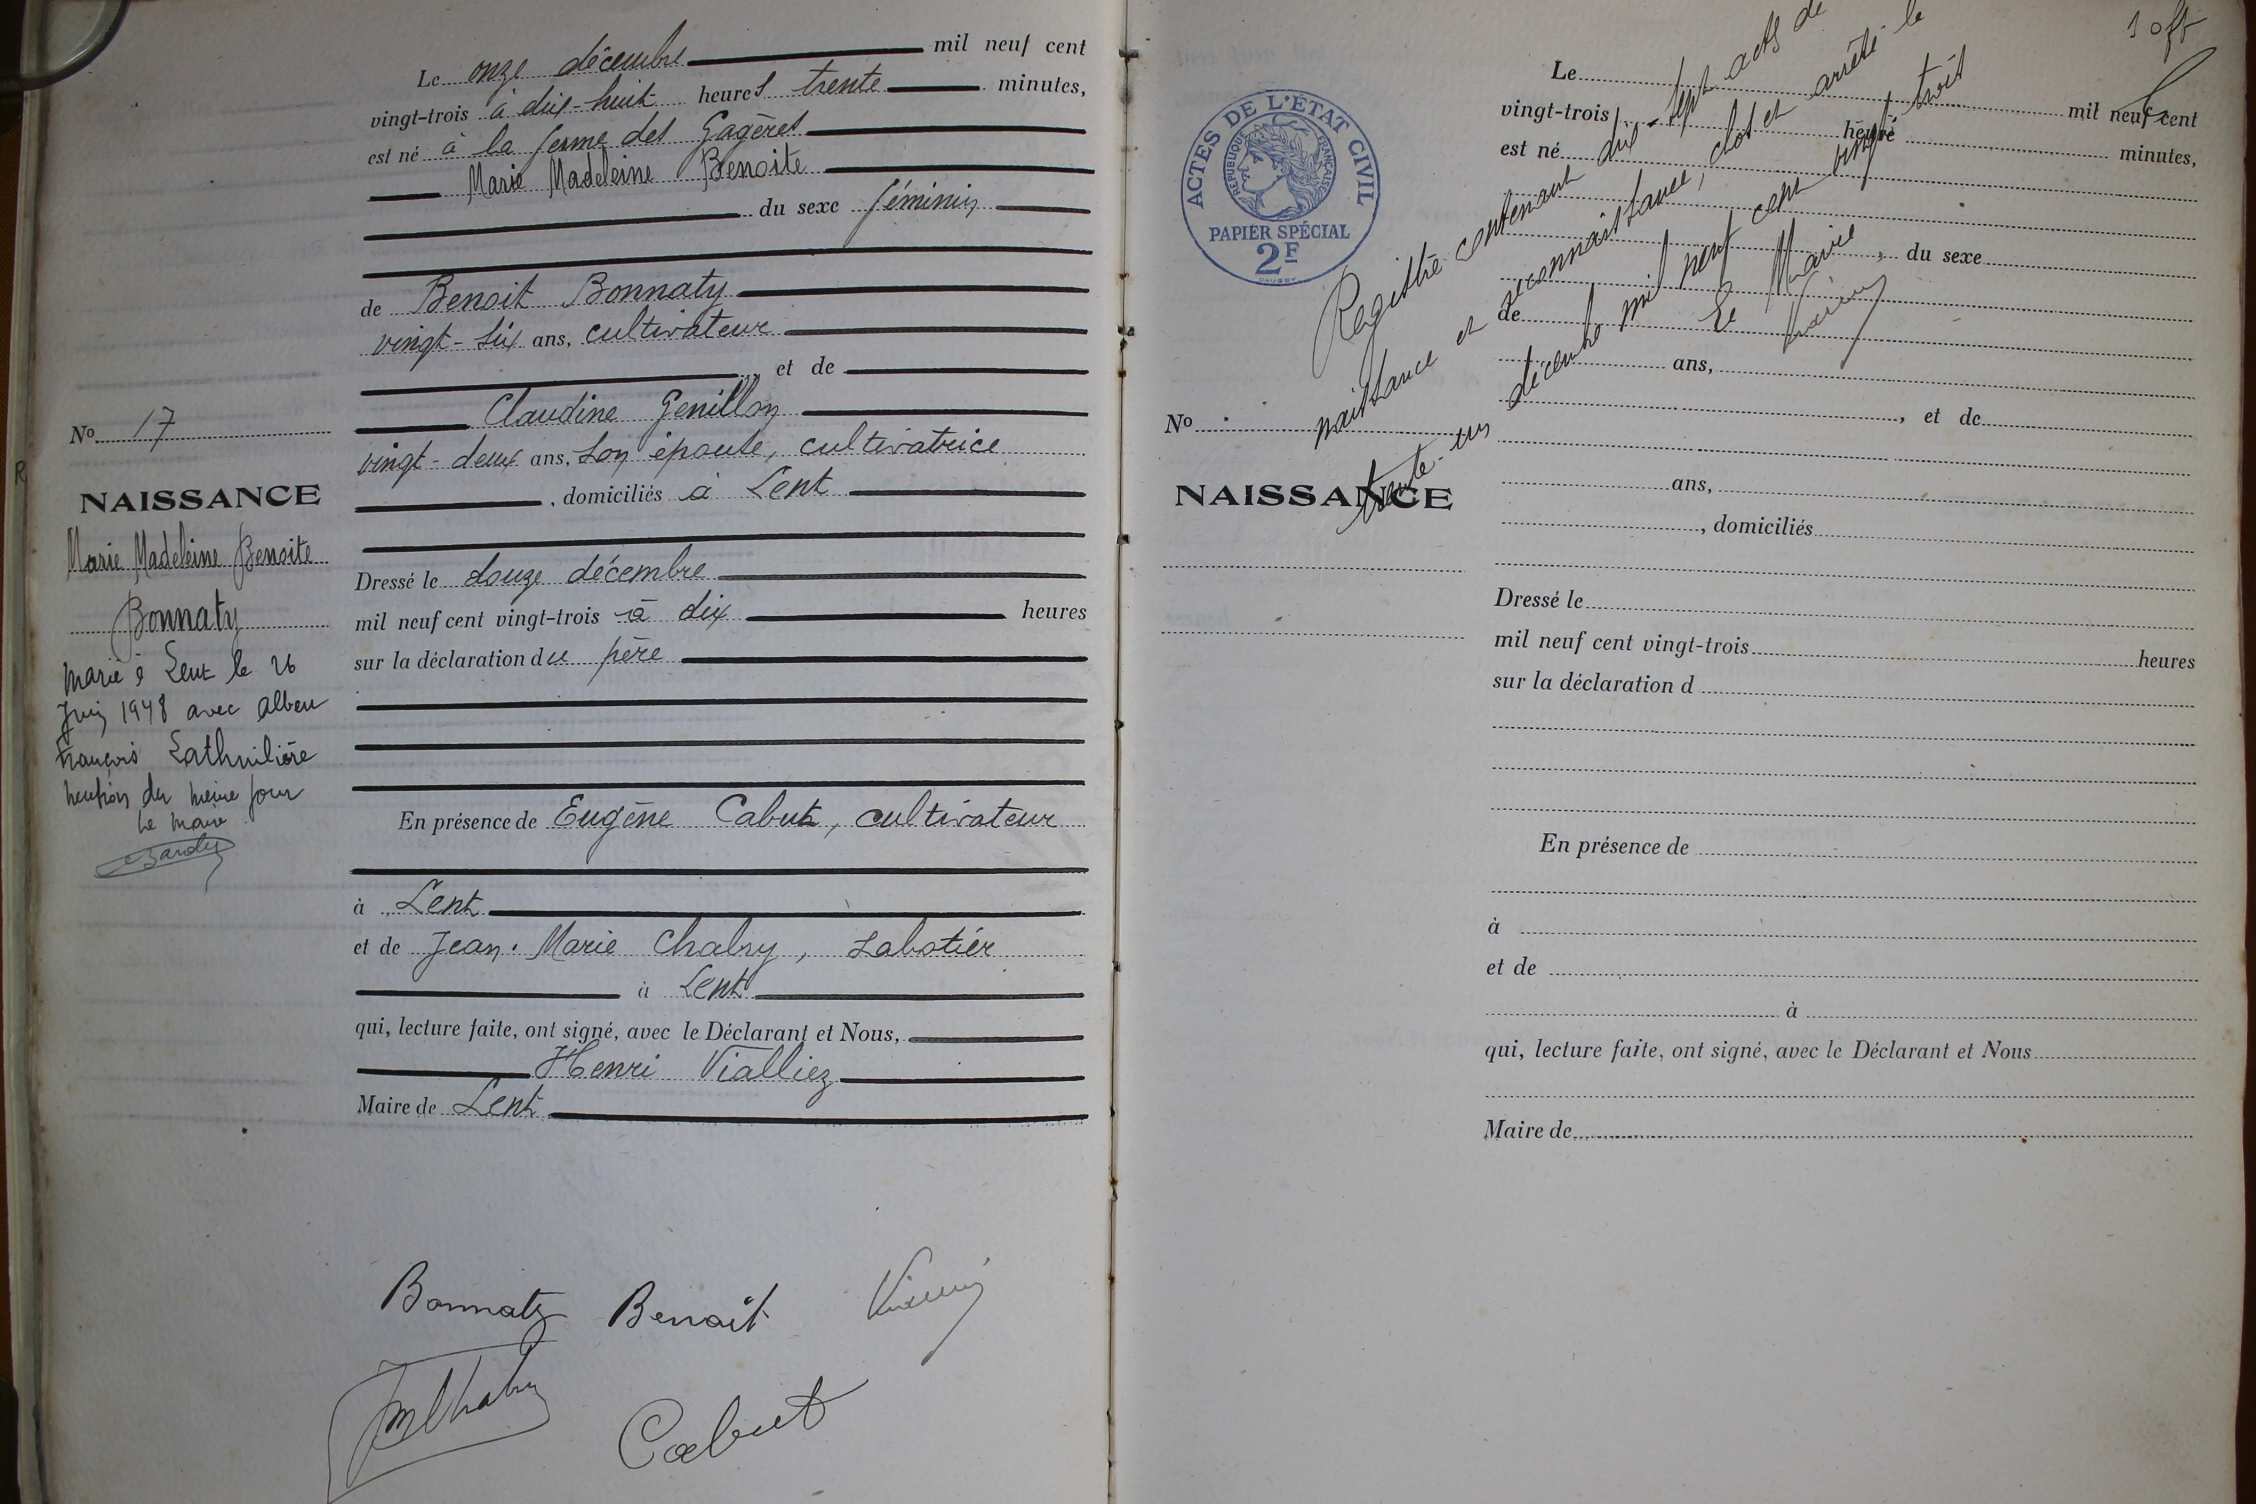 Le onze décembre mil neuf cent
vingt-trois à dix-huit heures trente minutes,
est né à la ferme des Gagères
Marie Madeleine Benoite
du sexe féminin
de Benoit Bonnaty
vingt-six ans, cultivateur
et de
Claudine Genillon
vingt-deux ans, son épouse, cultivatrice
, domiciliés à Lent
Dressé le douze décembre
mil neuf cent vingt-trois à dix heures
sur la déclaration du père
En présence de Eugène Cabut, cultivateur
à Lent
et de Jean-Marie Chabry, sabotier
à Lent
qui, lecture faite, ont signé, avec le Déclarant et Nous,
Henri Vialliez
Maire de Lent
Bonnaty Benoit
Cabut
No 17
NAISSANCE
Marie Madeleine Benoite
Bonnaty
Marié à Lent le 26
Juin 1948 avec Albert
François Lathuilière
Mention du même jour
Le Maire
ACTES DE L'ÉTAT CIVIL
RÉPUBLIQUE FRANÇAISE
PAPIER SPÉCIAL
2F
Registre contenant dix-sept actes de
naissance et reconnaissance, clos et arrêté le
trente-un décembre mil neuf cent vingt trois
Le Maire
No
NAISSANCE
Le mil neuf cent
vingt-trois heure minutes,
est né
du sexe
de
ans,
, et de
ans,
, domiciliés
Dressé le
mil neuf cent vingt-trois heures
sur la déclaration d
En présence de
à
et de
à
qui, lecture faite, ont signé, avec le Déclarant et Nous
Maire de